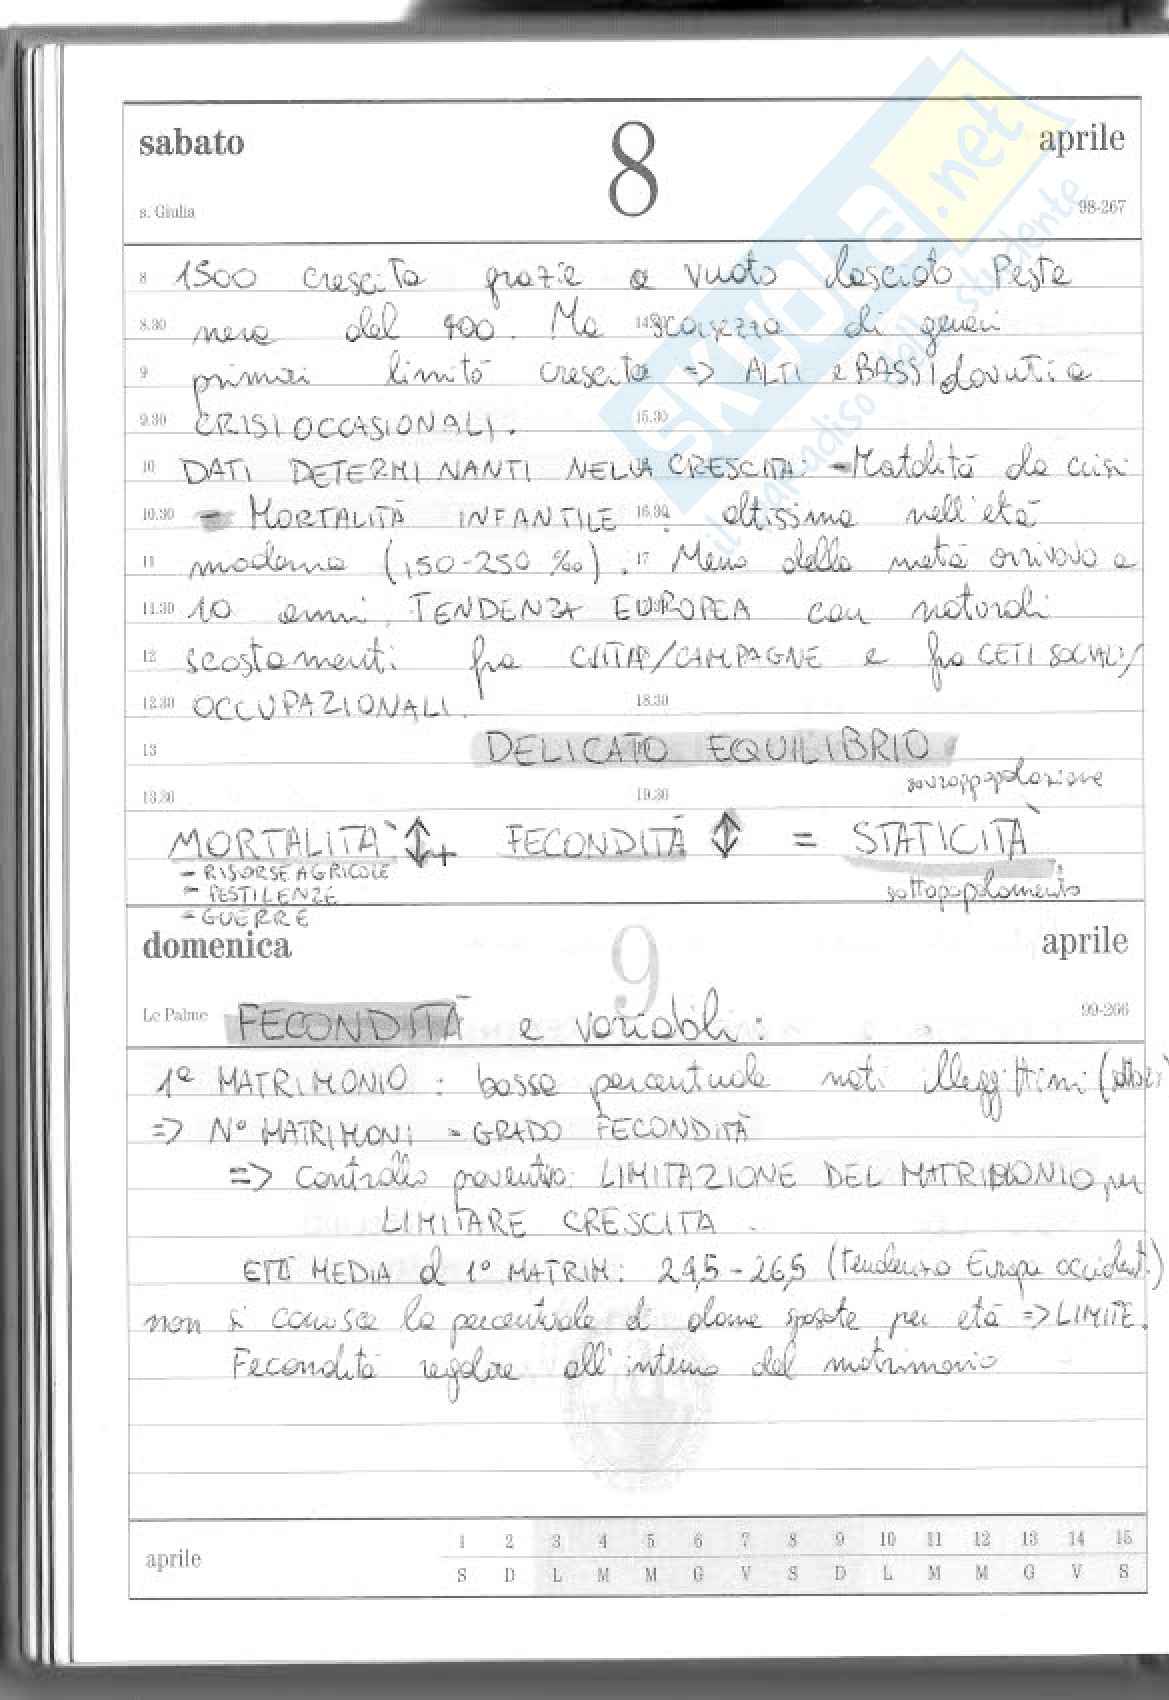 sabato 8 aprile
s. Giulia 98-267
8 1500 crescita grazie a vuoto lasciato Peste
8.30 nera del 400. Ma scarsezza di generi
9 primari limitò crescita => ALTI e BASSI dovuti a
9.30 CRISI OCCASIONALI. 15.30
10 DATI DETERMINANTI NELLA CRESCITA: - Matalità da crisi
10.30 - MORTALITÀ INFANTILE 16.30 : altissima nell'età
11 moderna (150-250 ‰). 17 Meno della metà arrivava a
11.30 10 anni. TENDENZA EUROPEA con naturali
12 scostamenti fra CITTÀ/CAMPAGNE e fra CETI SOCIALI/
12.30 OCCUPAZIONALI. 18.30
13 DELICATO EQUILIBRIO
sovrappopolazione
13.30 19.30
MORTALITA' ↕ + FECONDITÀ ↕ = STATICITÀ
- RISORSE AGRICOLE
- PESTILENZE
sottopopolamento
- GUERRE
domenica 9 aprile
Le Palme 99-266
FECONDITÀ e variabili:
1ª MATRIMONIO: bassa percentuale nati illeggittimi
=> N° MATRIMONI = GRADO FECONDITÀ
=> Controllo preventivo: LIMITAZIONE DEL MATRIMONIO per
LIMITARE CRESCITA.
ETÀ MEDIA di 1° MATRIM: 24,5-26,5 (tendenza Europa occident.)
non si conosce la percentuale di donne sposate per età => LIMITE.
Fecondità regolare all'interno del matrimonio
aprile 1 2 3 4 5 6 7 8 9 10 11 12 13 14 15
S D L M M G V S D L M M G V S
SKUOLA.net
il paradiso dello studente